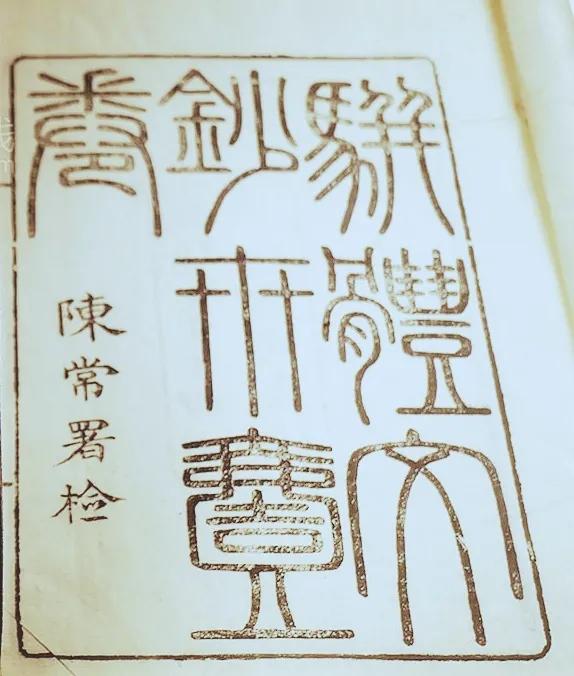 駢體文
鈔卅壹
卷
陳常署檢